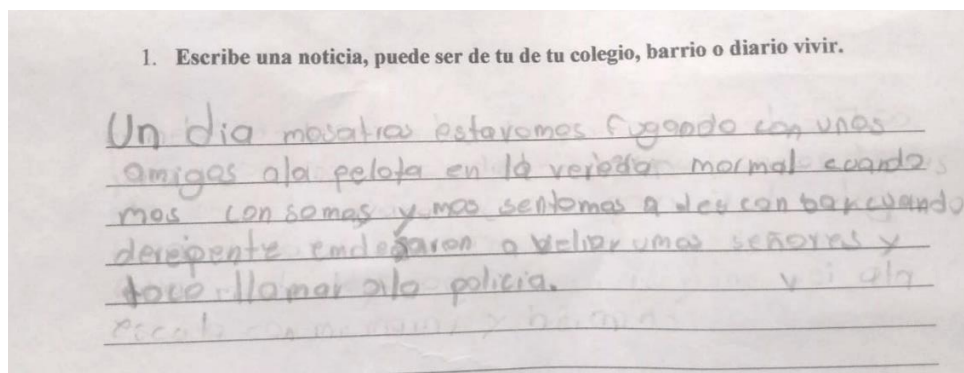 1. Escribe una noticia, puede ser de tu de tu colegio, barrio o diario vivir.
Un dia mosatros estavomos fugando con unos
amigos ala pelota en la vereda mormal cuando
mos consomas y mos sentomos a desconbar cuando
derepente emdesaron a veliar umos señores y
toco llamar ala policia. voi ala